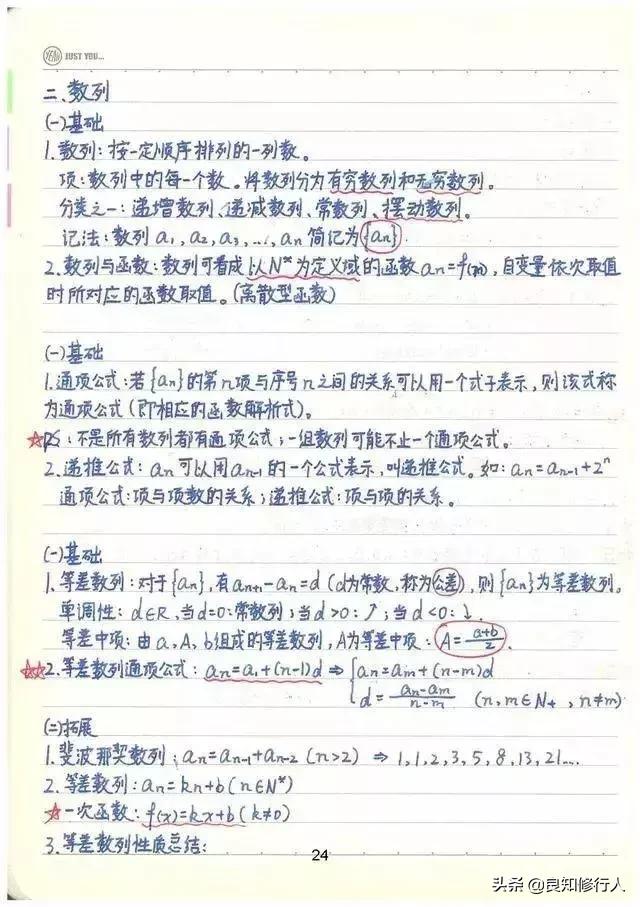 YEAH JUST YOU...
二、数列
(一)基础
1.数列：按一定顺序排列的一列数。
项：数列中的每一个数。将数列分为有穷数列和无穷数列。
分类之一：递增数列、递减数列、常数列、摆动数列。
记法：数列a₁, a₂, a₃, ..., aₙ 简记为{aₙ}
2.数列与函数：数列可看成以N*为定义域的函数aₙ=f(n)，自变量依次取值
时所对应的函数取值。(离散型函数)
(一)基础
1.通项公式：若{aₙ}的第n项与序号n之间的关系可以用一个式子表示，则该式称
为通项公式(即相应的函数解析式)。
☆PS：不是所有数列都有通项公式；一组数列可能不止一个通项公式。
2.递推公式：aₙ可以用aₙ₋₁的一个公式表示，叫递推公式。如：aₙ=aₙ₋₁+2ⁿ
通项公式：项与项数的关系；递推公式：项与项的关系。
(一)基础
1.等差数列：对于{aₙ}，有aₙ₊₁-aₙ=d (d为常数，称为公差)，则{aₙ}为等差数列。
单调性：d∈R，当d=0：常数列；当d>0：↗；当d<0：↓.
等差中项：由a, A, b组成的等差数列，A为等差中项：A=(a+b)/2.
☆☆2.等差数列通项公式：aₙ=a₁+(n-1)d ⇒ {aₙ=aₘ+(n-m)d
d=(aₙ-aₘ)/(n-m) (n, m∈N₊, n≠m)
(二)拓展
1.斐波那契数列：aₙ=aₙ₋₁+aₙ₋₂ (n>2) ⇒ 1, 1, 2, 3, 5, 8, 13, 21....
2.等差数列：aₙ=kn+b(n∈N*)
☆一次函数：f(x)=kx+b(k≠0)
3.等差数列性质总结：
24
头条@良知修行人